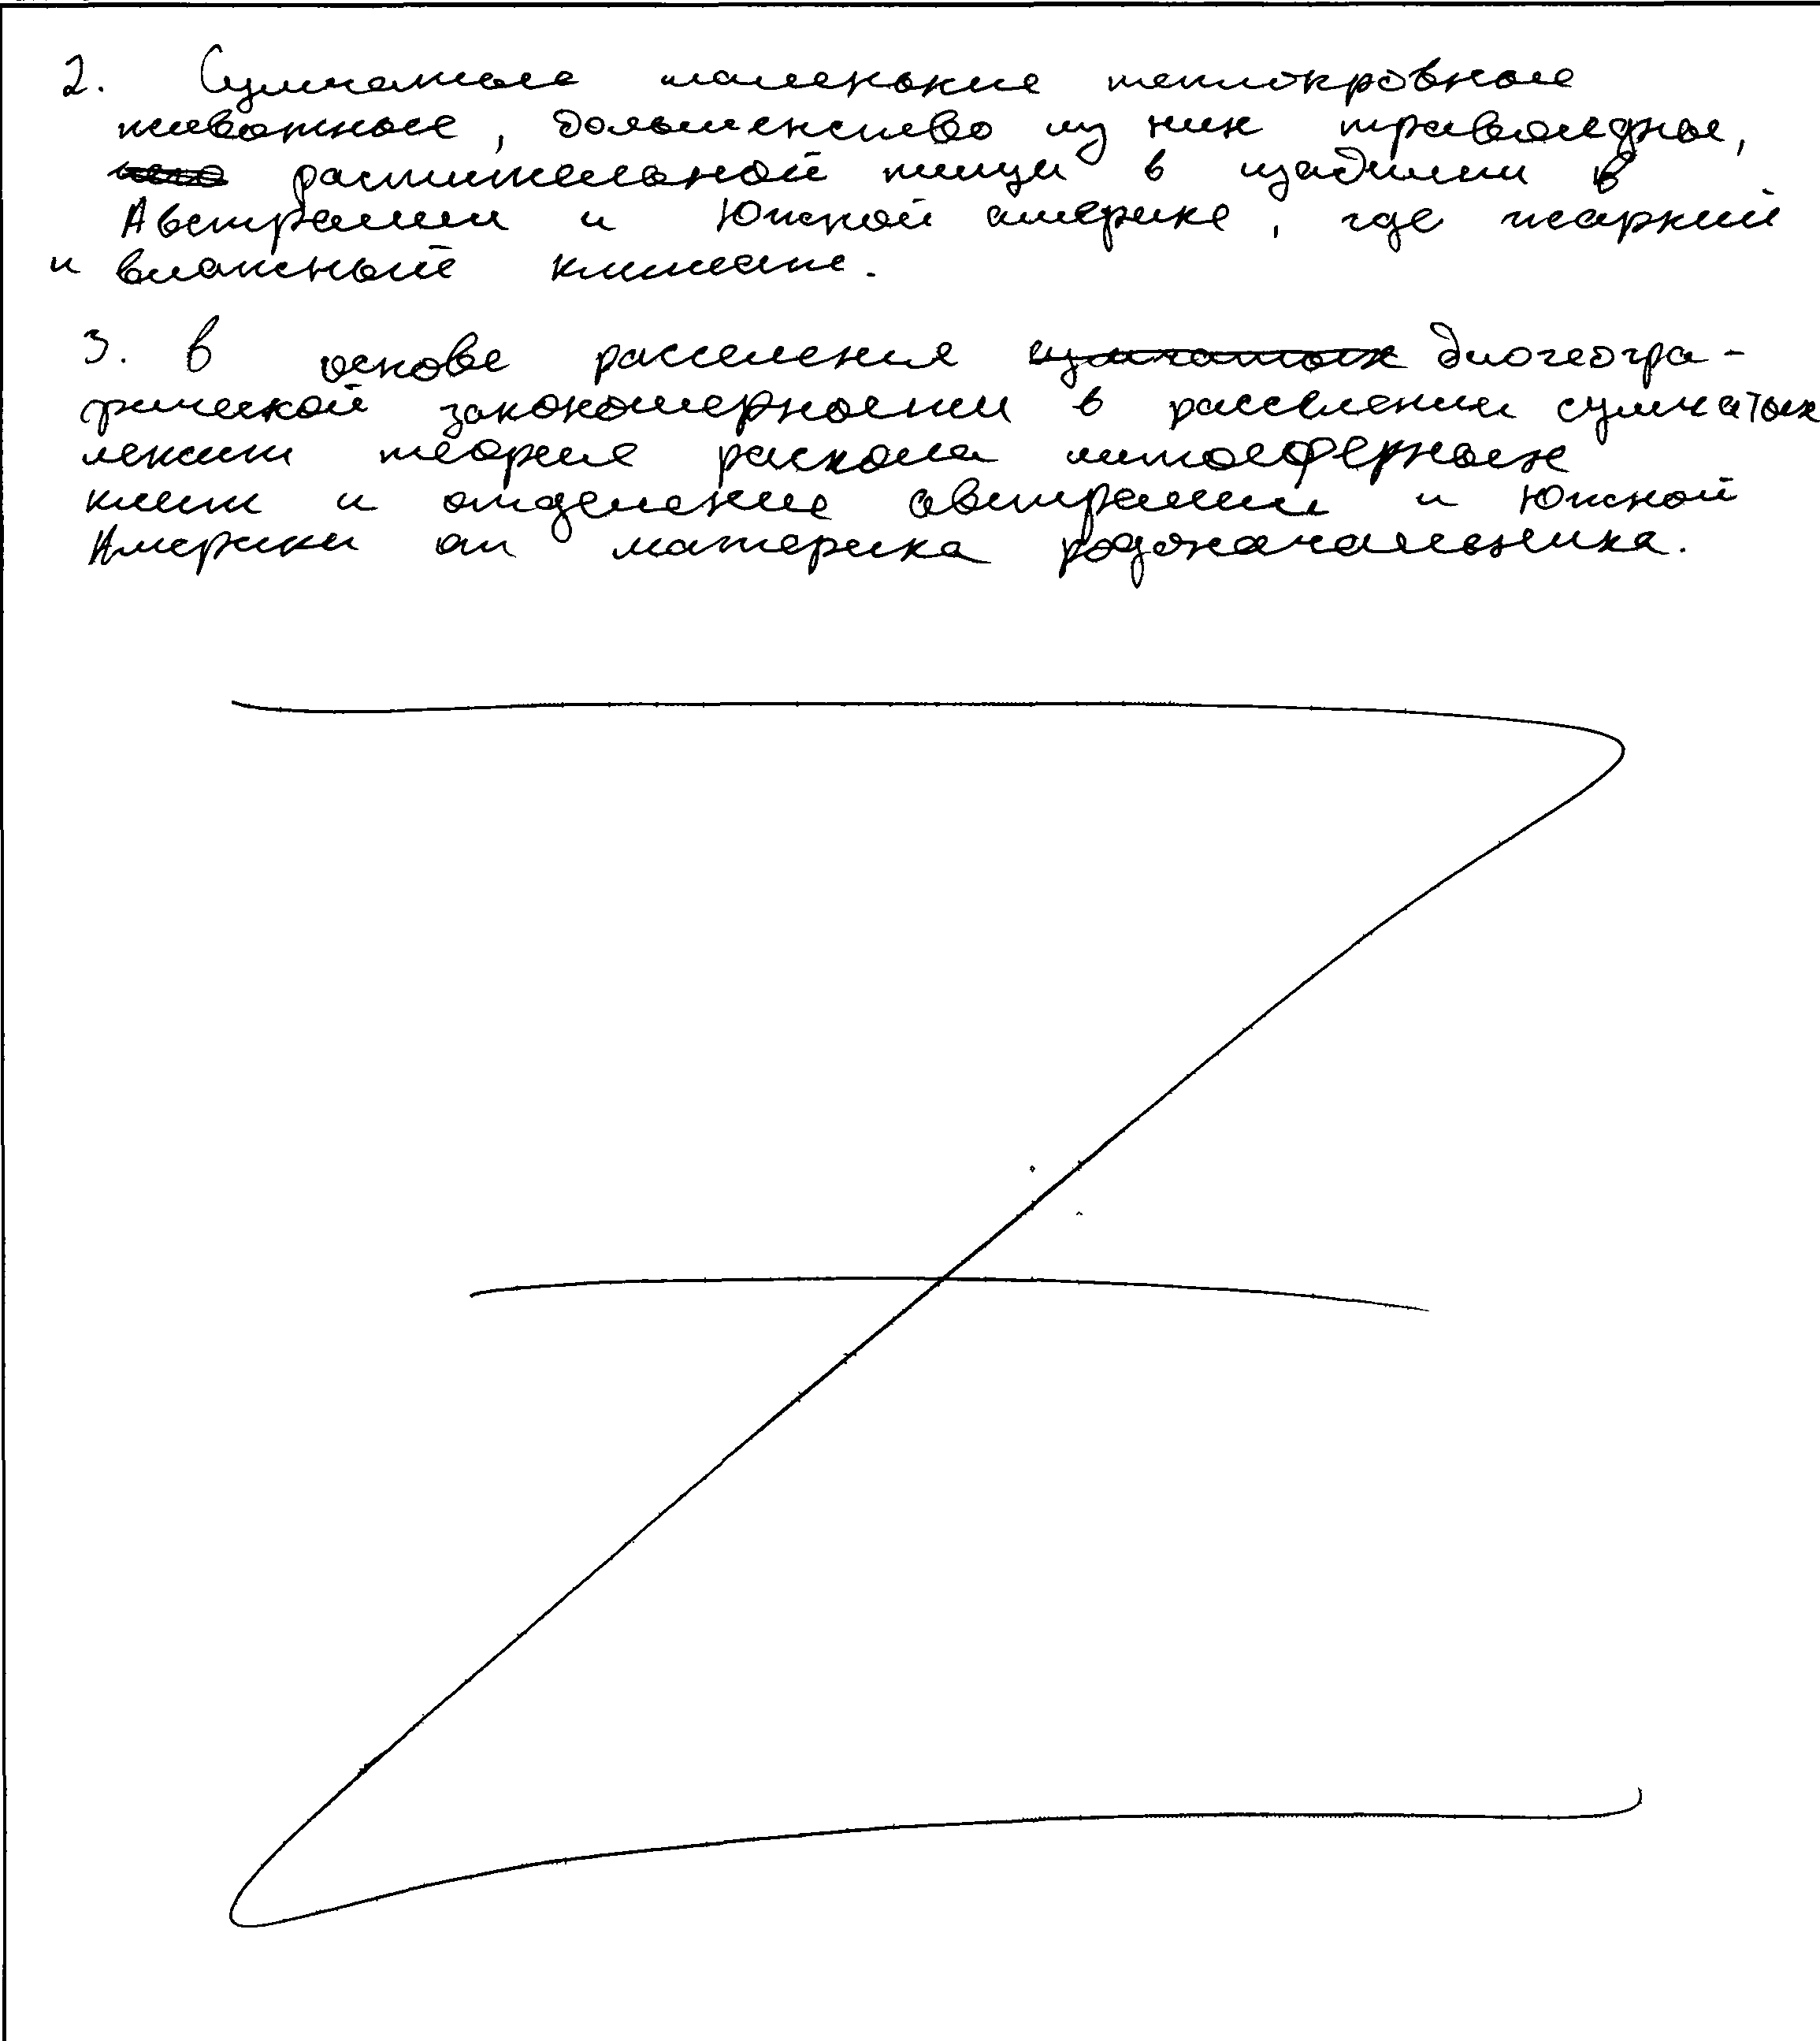 2. Сумчатые маленькие теплокровные
животные, большенство из них травоядные,
растительной пищи в изобилии в
Австралии и Южной америке, где жаркий
и влажный климат.
3. В основе расселения биогеогра-
фической закономерности в расселении сумчатых
лежит теория раскола литосферных
плит и отделение австралии и Южной
Америки от материка родоначальника.